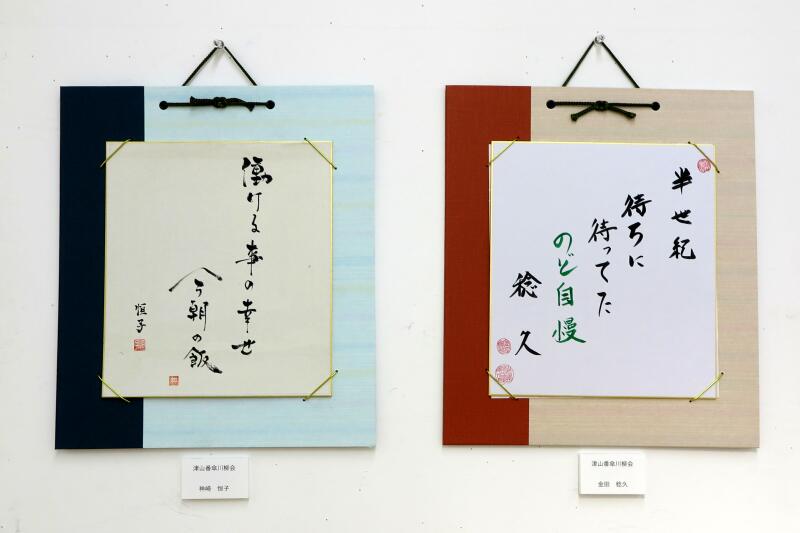 働ける事の幸せ
今朝の飯
恒子
津山番傘川柳会
神崎 恒子
半世紀
待ちに
待ってた
のど自慢
稔久
津山番傘川柳会
金田 稔久